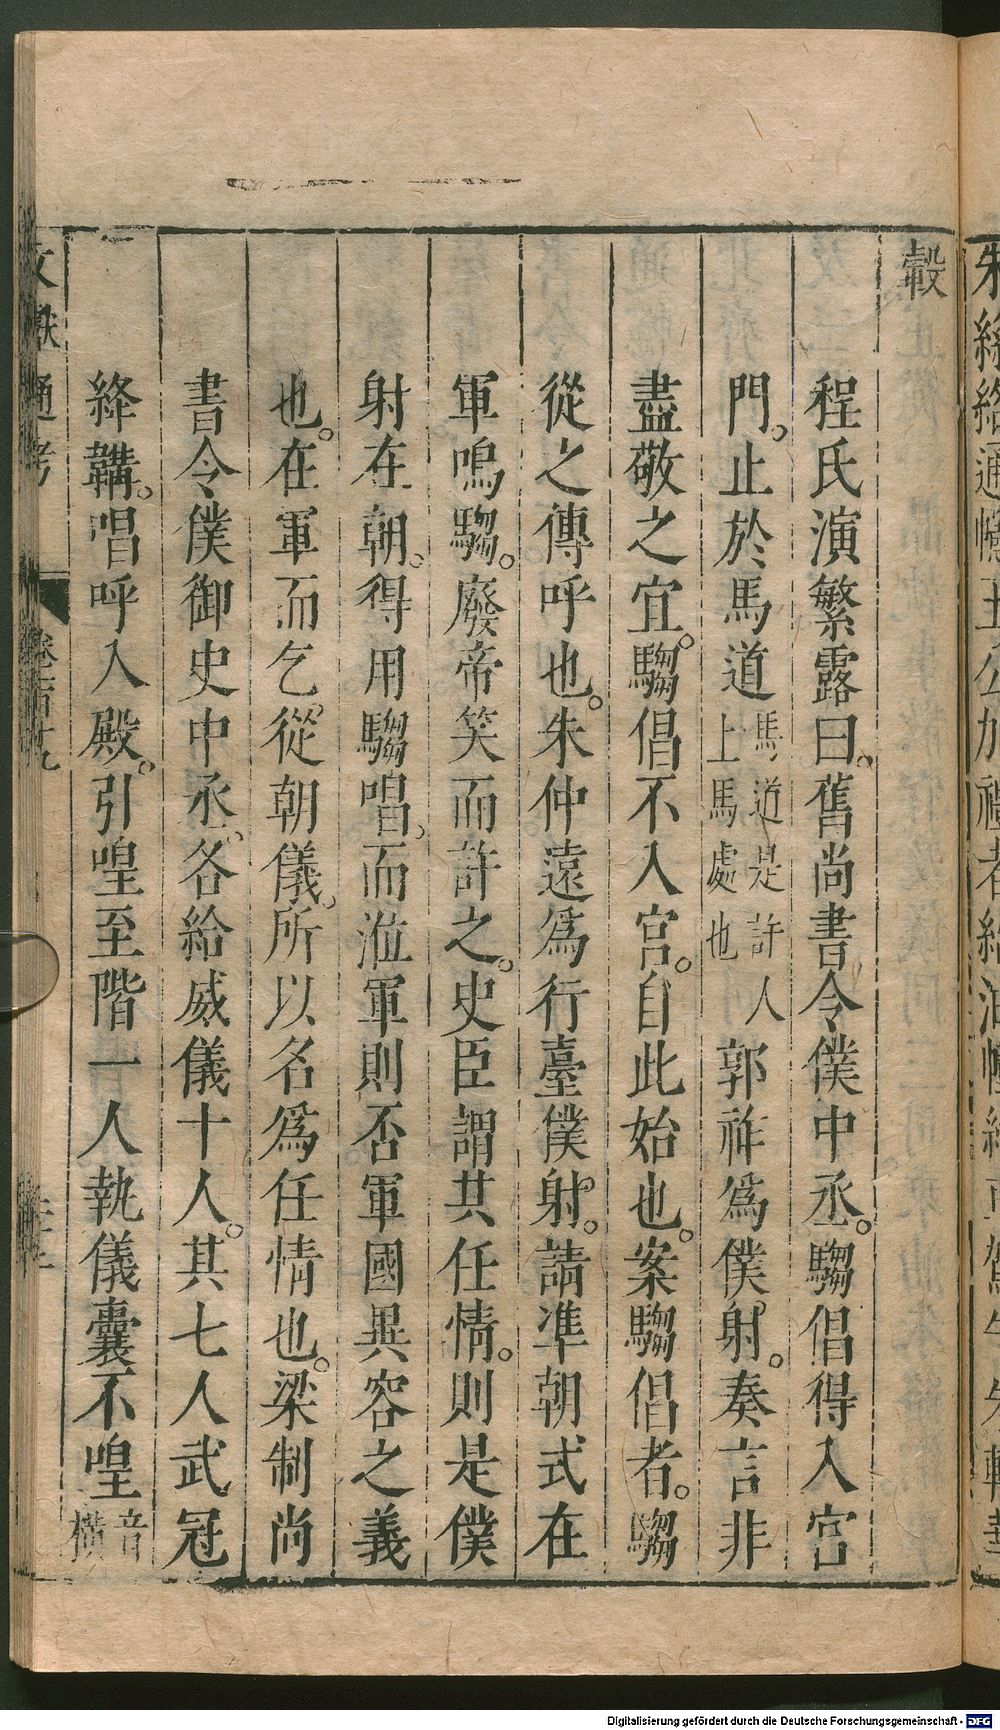 朱絲絡通幰王公加禮者給油幰絡車駕牛朱輪華
轂
程氏演繁露曰。舊尚書令僕中丞。騶倡得入宮
門。止於馬道馬道是許人上馬處也郭祚爲僕射。奏言非
盡敬之宜。騶倡不入宮。自此始也。案騶倡者。騶
從之傳呼也。朱仲遠爲行臺僕射。請準朝式在
軍鳴騶。廢帝笑而許之。史臣謂其任情。則是僕
射在朝。得用騶唱。而涖軍則否軍國異容之義
也。在軍而乞。從朝儀。所以名爲任情也。梁制尚
書令僕御史中丞。各給威儀十人。其七人武冠
絳韝。唱呼入殿。引喤至階一人執儀囊不喤音橫
文獻通考
卷一百十九
Digitalisierung gefördert durch die Deutsche Forschungsgemeinschaft - DFG